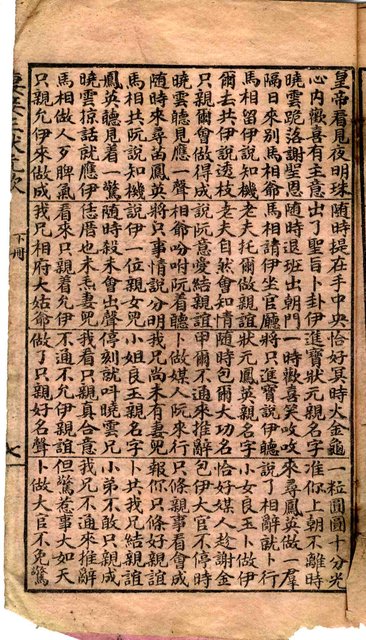 皇帝看見夜明珠 隨時提在手中央 恰好冥時火金龜 一粒圓圓十分光
心內歡喜有主意 出了聖旨卜卦伊 進寶狀元親名字 准你上朝不離時
曉雲跪落謝聖恩 隨時退班出朝門 一時歡喜笑吺吺 來尋鳳英做一羣
隔日來別馬相爺 馬相請伊坐官廳 將只進寶說伊聽 說了相辭就卜行
馬相留伊說知機 老夫托爾做親誼 狀元鳳英親名字 小女良玉卜做伊
爾去共伊說透枝 老夫自然會知情 隨時包爾大功名 恰好媒人趁謝金
只親爾會做得成 說阮意愛結親誼 甲爾不通來推辭 包伊大官不停時
曉雲聽見應一聲 相爺吩咐阮着聽 卜做媒人阮來行 只條親事看會成
隨時來尋苗鳳英 將只事情說分明 我兄尚未有妻兒 報你只條好親誼
馬相共阮說知機 說伊一位親女兒 小姐良玉親名字 卜共我兄結親誼
鳳英聽見着一驚 隨時殺未會出聲 停刻就叫曉雲兄 小弟不敢只親成
曉雲掠話就應伊 恁厝也未妻兒 我看只親真合意 我兄不通來推辭
馬相做人歹脾氣 看來只親着允伊 不通不允伊親誼 但驚惹事大如天
只親允伊來做成 我兄相府大姑爺 做了只親好名聲 卜做大官不免驚
下冊
七